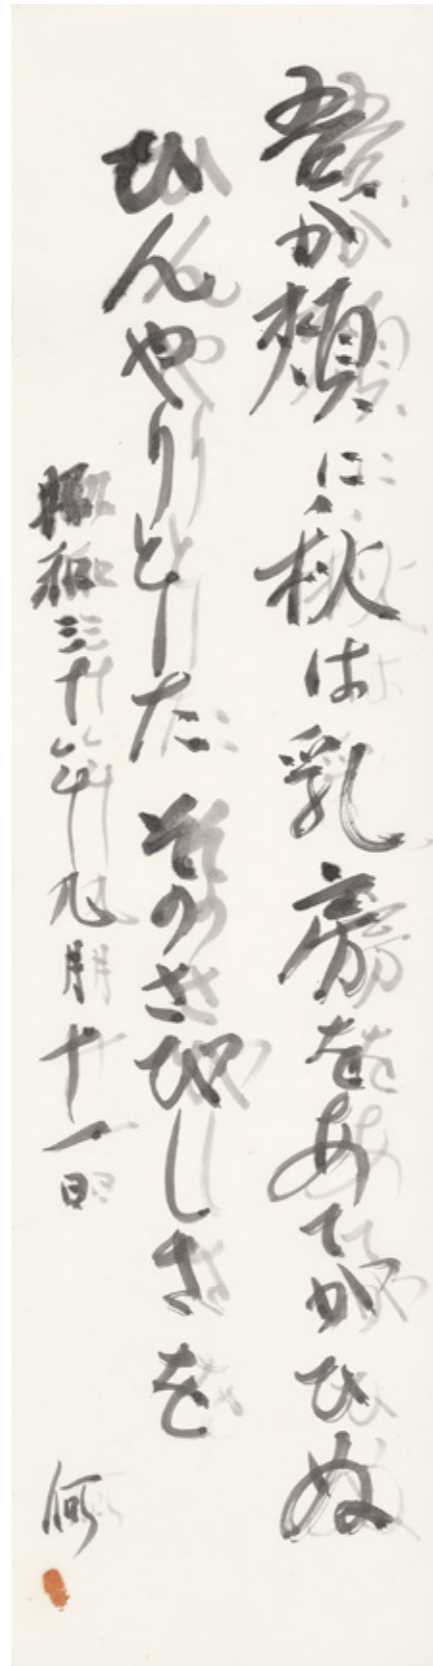 吾が頬に秋は乳房をあてがひぬ
ひんやりとした そのさびしさを
昭和三十年九月十一日
何